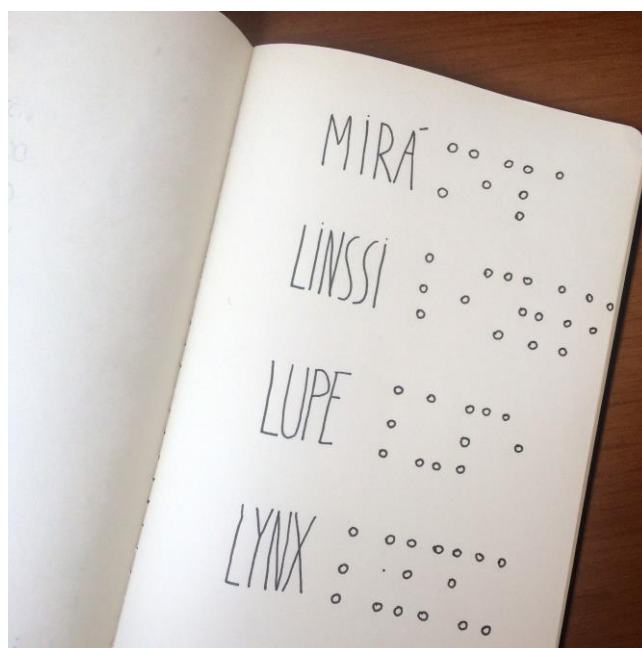 MIRÁ
LINSSI
LUPE
LYNX